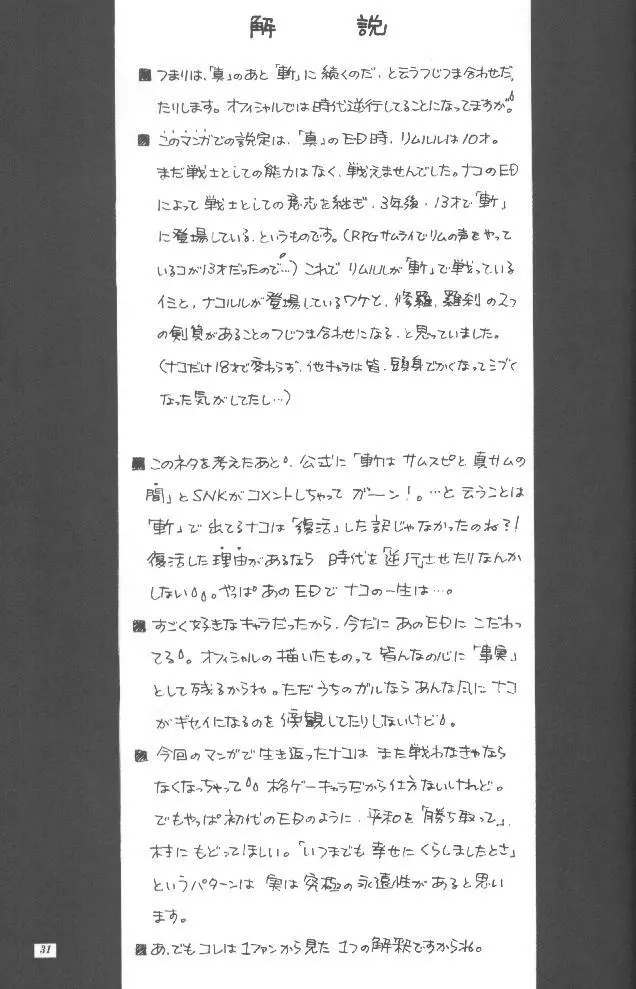 解 説
■つまりは、「真」のあと「斬」に続くのだ、と云うつじつま合わせだっ
たりします。オフィシャルでは時代逆行してることになってますが。
■このマンガでの設定は、「真」のED時、リムルルは10才。
まだ戦士としての能力はなく、戦えませんでした。ナコのED
によって戦士としての意志を継ぎ、3年後・13才で「斬」
に登場している、というものです。(RPGサムライでリムの声をやって
いるコが13才だったので…)これでリムルルが「斬」で戦っている
イミと、ナコルルが登場しているワケと、修羅、羅刹の2つ
の剣質があることのつじつま合わせになる、と思っていました。
(ナコだけ18才で変わらず、他キャラは皆、頭身でかくなってシブく
なった気がしてたし…)
■このネタを考えたあと、公式に「斬はサムスピと真サムの
間」とSNKがコメントしちゃってガーン!。…と云うことは
「斬」で出てるナコは「復活」した訳じゃなかったのね?!
復活した理由があるなら時代を「逆行」させたりなんか
しない。やっぱあのEDでナコの一生は…。
■すごく好きなキャラだったから、今だにあのEDにこだわっ
てる。オフィシャルの描いたものって皆んなの心に「事実」
として残るからね。ただうちのガルならあんな風にナコ
がギセイになるのを傍観してたりしないけど。
■今回のマンガで生き返ったナコはまた戦わなきゃなら
なくなっちゃって 格ゲーキャラだから仕方ないけれど。
でもやっぱ初代のEDのように、平和を「勝ち取って」、
村にもどってほしい。「いつまでも幸せにくらしましたとさ」
というパターンは実は究極の永遠性があると思い
ます。
■あ、でもコレは1ファンから見た1つの解釈ですからね。
31